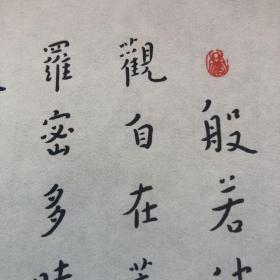 般若
觀自在菩
羅密多時